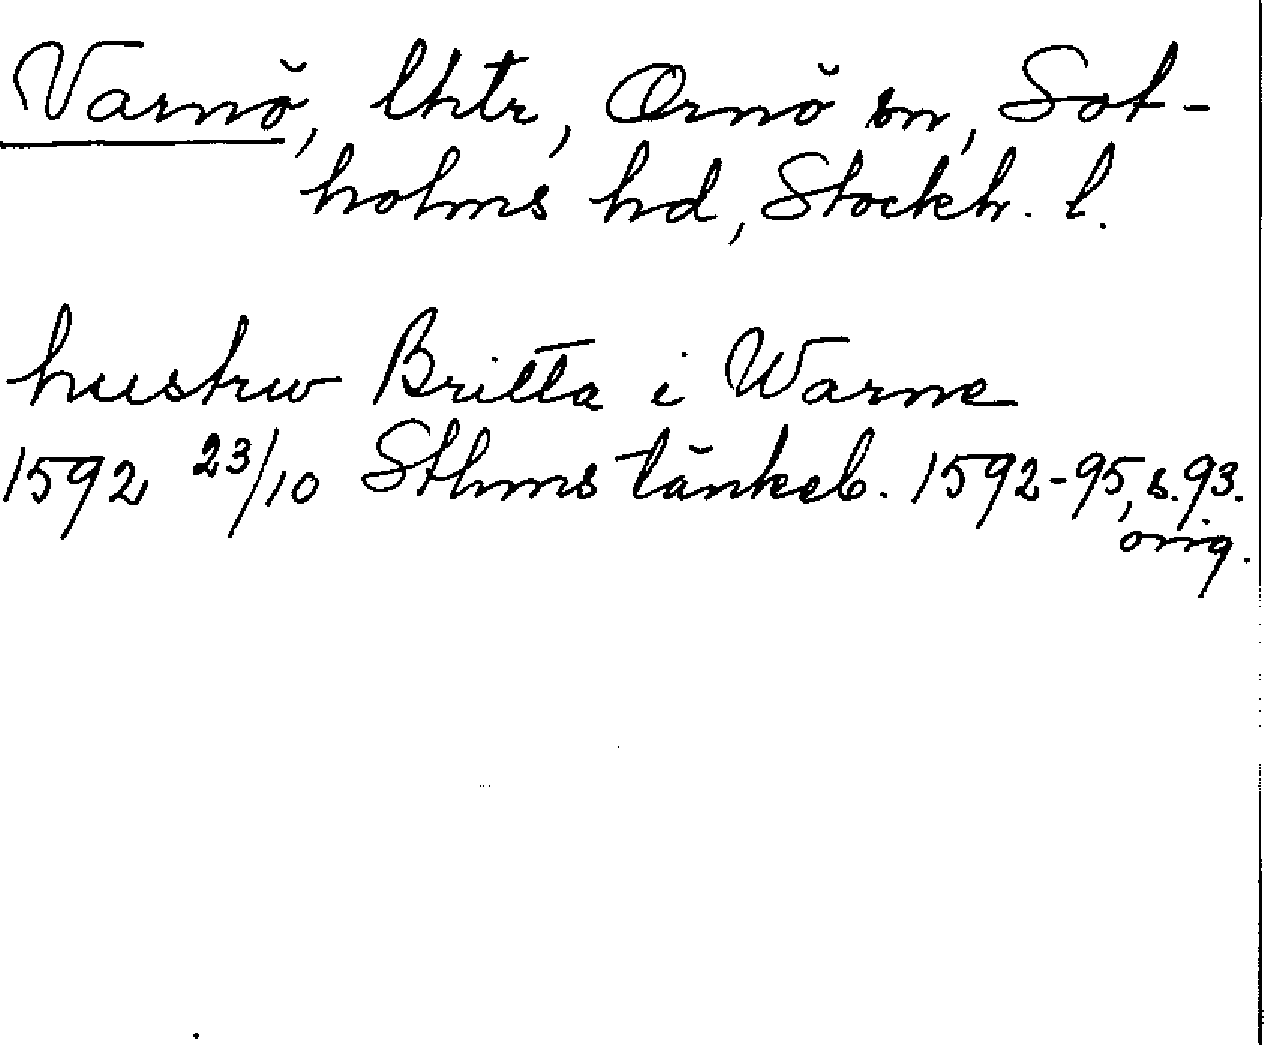 Varnö, lhtr, Ornö sn, Sot-
holms hd, Stockh. l.
hustrw Britta i Warne
1592 23/10 Sthms tänkeb. 1592-95, s. 93.
orig.